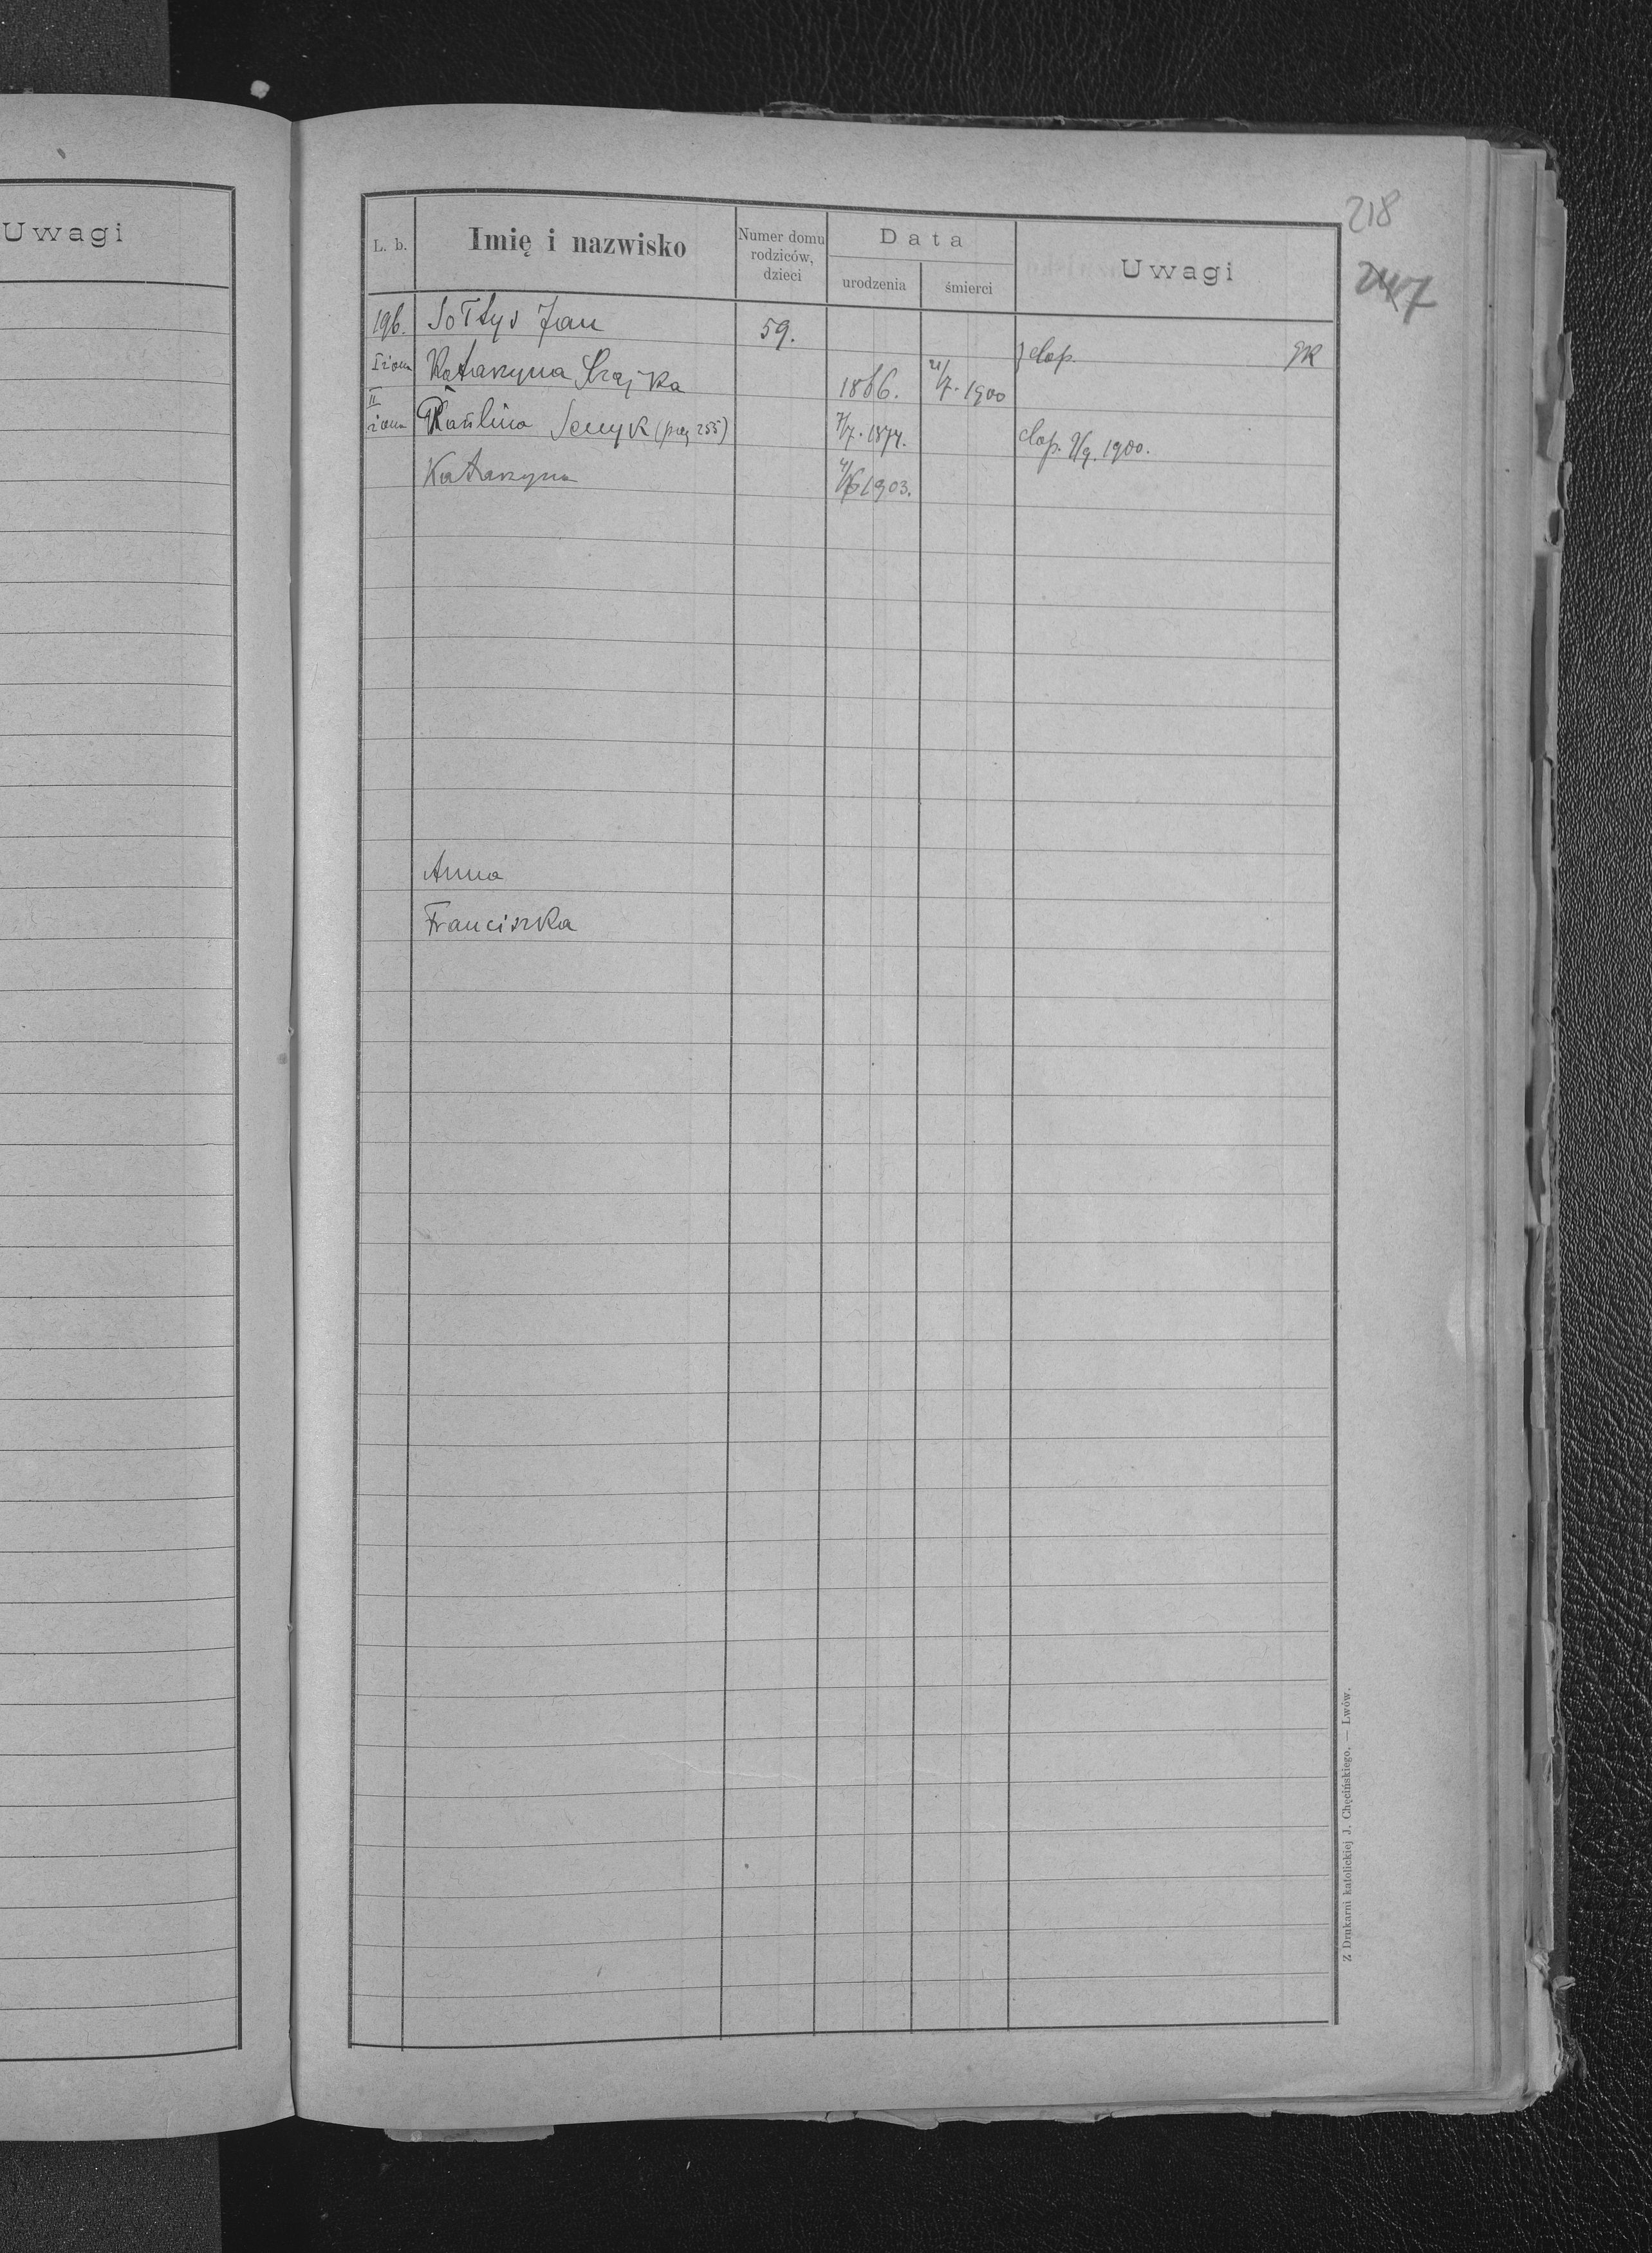 Uwagi
218
247
L. b.
Imię i nazwisko
Numer domu rodziców, dzieci
Data
urodzenia
śmierci
Uwagi
196. Sołtys Jan 59. gk
I żona Katarzyna 1866. 21/7. 1900
II żona Paulina Senyk (pag 255) 7/7. 1874. 1900.
Katarzyna 1903.
Anna
Franciszka
Z Drukarni katolickiej J. Chęcińskiego, — Lwów.